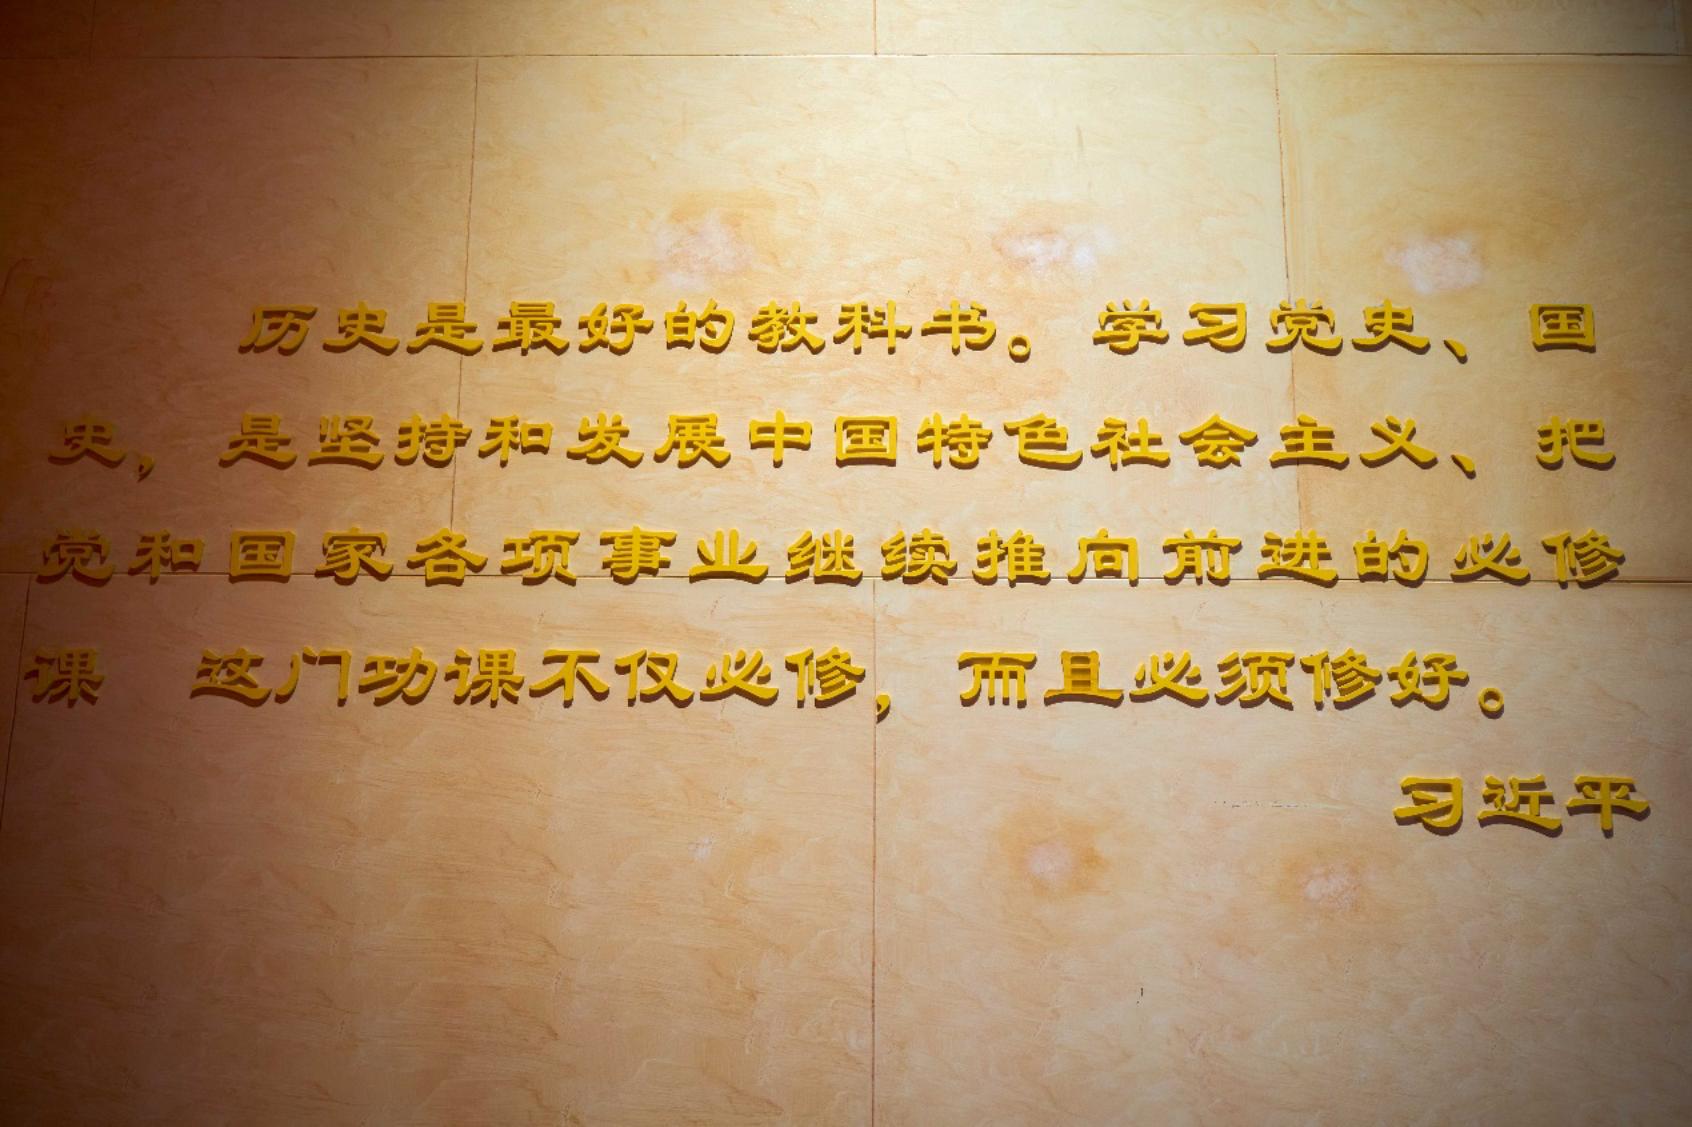 历史是最好的教科书。学习党史、国
史，是坚持和发展中国特色社会主义、把
党和国家各项事业继续推向前进的必修
课 这门功课不仅必修，而且必须修好。
习近平